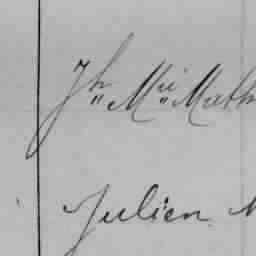 Jh Mie Math
Julien M